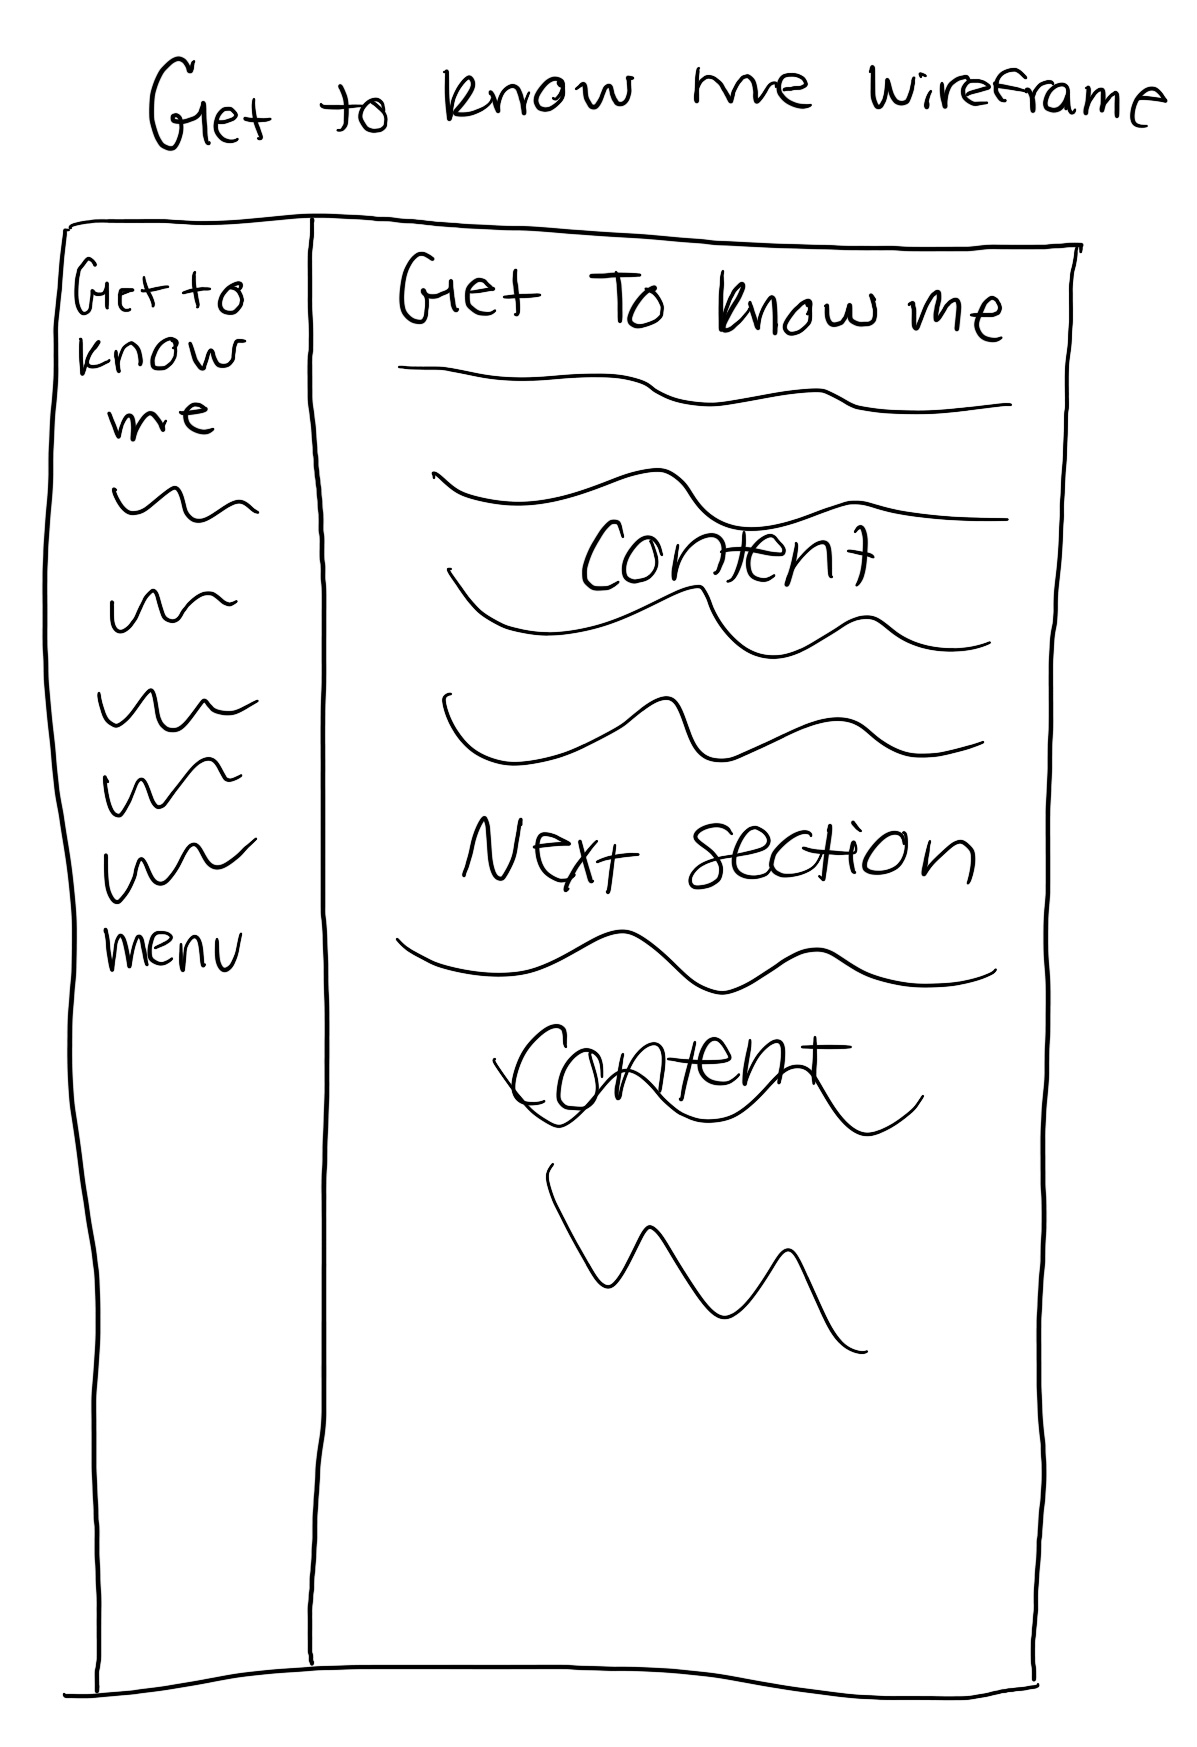 Get to know me wireframe
Get to
know
me
menu
Get To know me
Content
Next section
Content